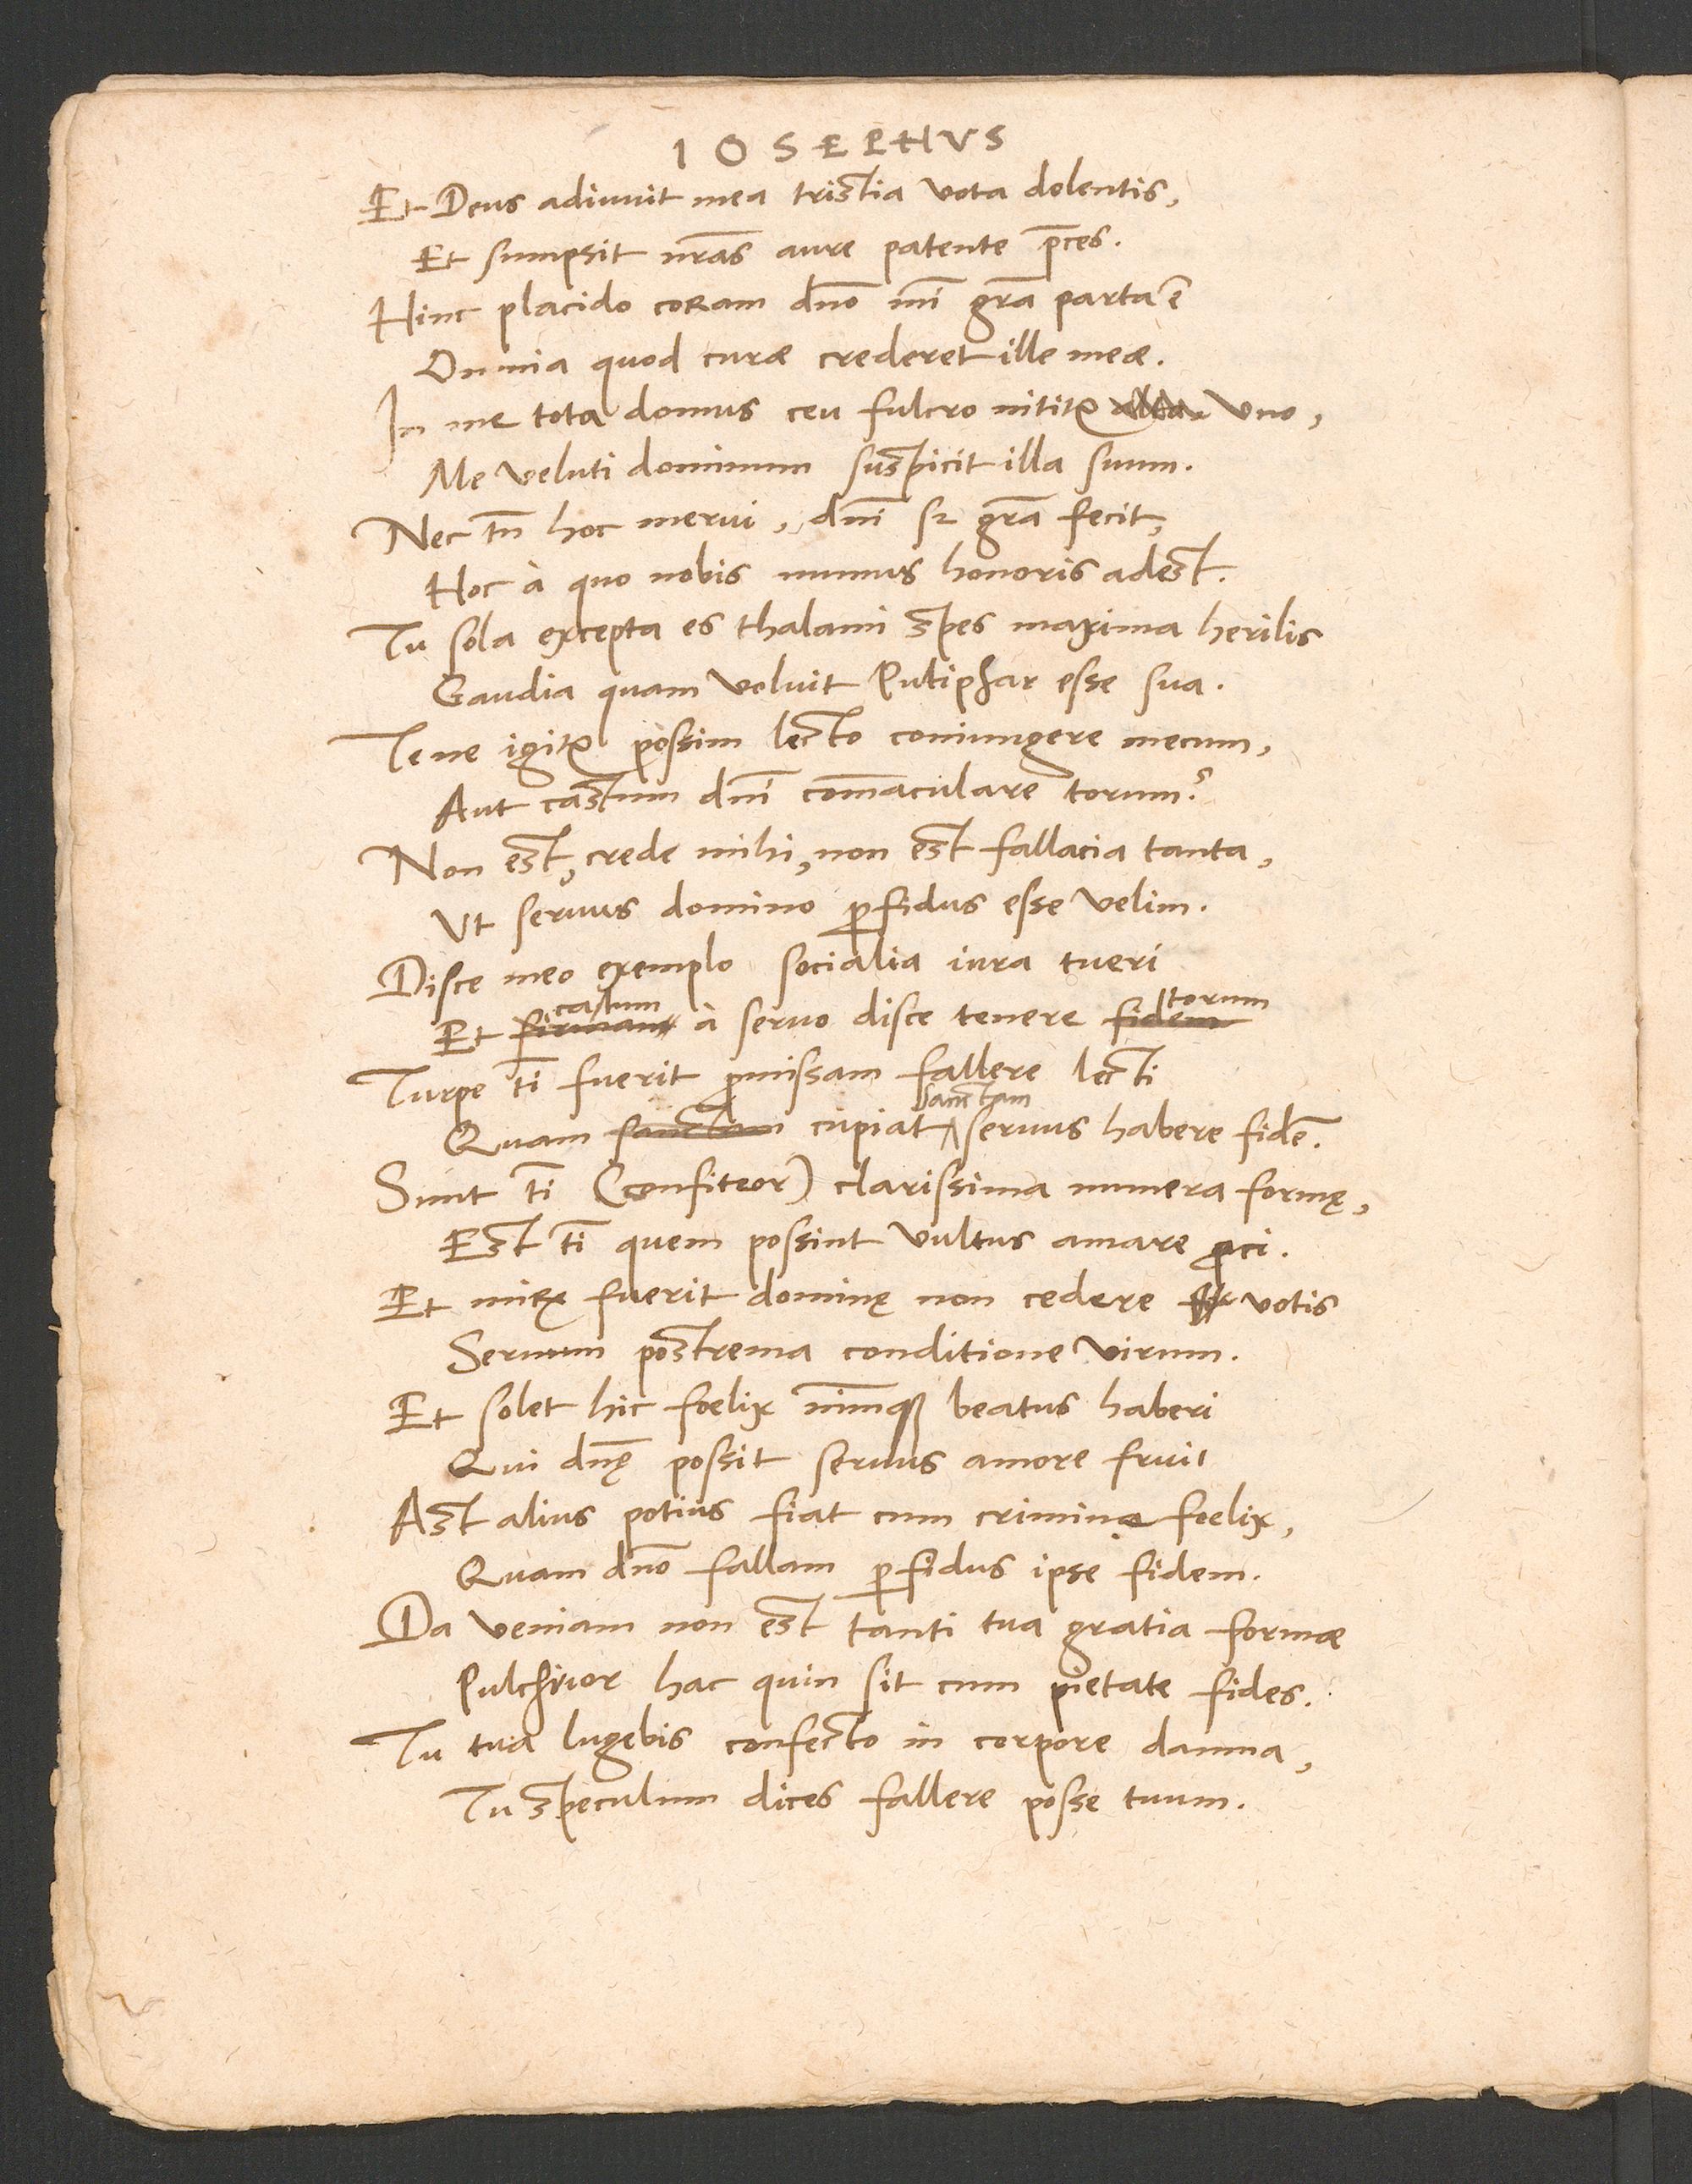 IOSEPHVS
Et Deus adiuuit mea tristia vota dolentis,
Et sumpsit nr̃as aure patente p̃ces.
Hinc placido coram dño mĩ gr̃a parta ẽ
Omnia quod curæ crederet ille meæ.
In me tota domus ceu fulcro nititꝛ uno,
Me veluti dominum suspicit illa suum.
Nec tñ hoc merui, dñi sꝫ gr̃a fecit,
Hoc à quo nobis munus honoris adest.
Tu sola excepta es thalami spes maxima herilis
Gaudia quam voluit Putiphar esse sua.
Te ne igitꝛ possim lecto coniungere mecum,
Aut castum dñi com̃aculare torum?
Non est, crede mihi, non est fallacia tanta,
Ut seruus domino ꝑfidus esse velim.
Disce meo exemplo socialia iura tueri
castum torum
Et firmam à seruo disce tenere fidem
Turpe tĩ fuerit ꝓmissam fallere lecti
sanctam
Quam sanctam cupiat seruus habere fidẽ.
Sunt tĩ (confiteor) clarissima munera formę,
Est tĩ quem possint vultus amare ꝓci.
Et mirꝝ fuerit dominę non cedere votis
Seruum postrema conditione virum.
Et solet hic foelix nimiũqꝫ beatus haberi
Qui dñę possit seruus amore frui
Ast alius potius fiat cum crimine foelix,
Quam dño fallam ꝑfidus ipse fidem.
Da veniam non est tanti tua gratia formæ
Pulchrior hac quin sit cum pietate fides.
Tu tua lugebis confecto in corpore damna,
Tu speculum dices fallere posse tuum.